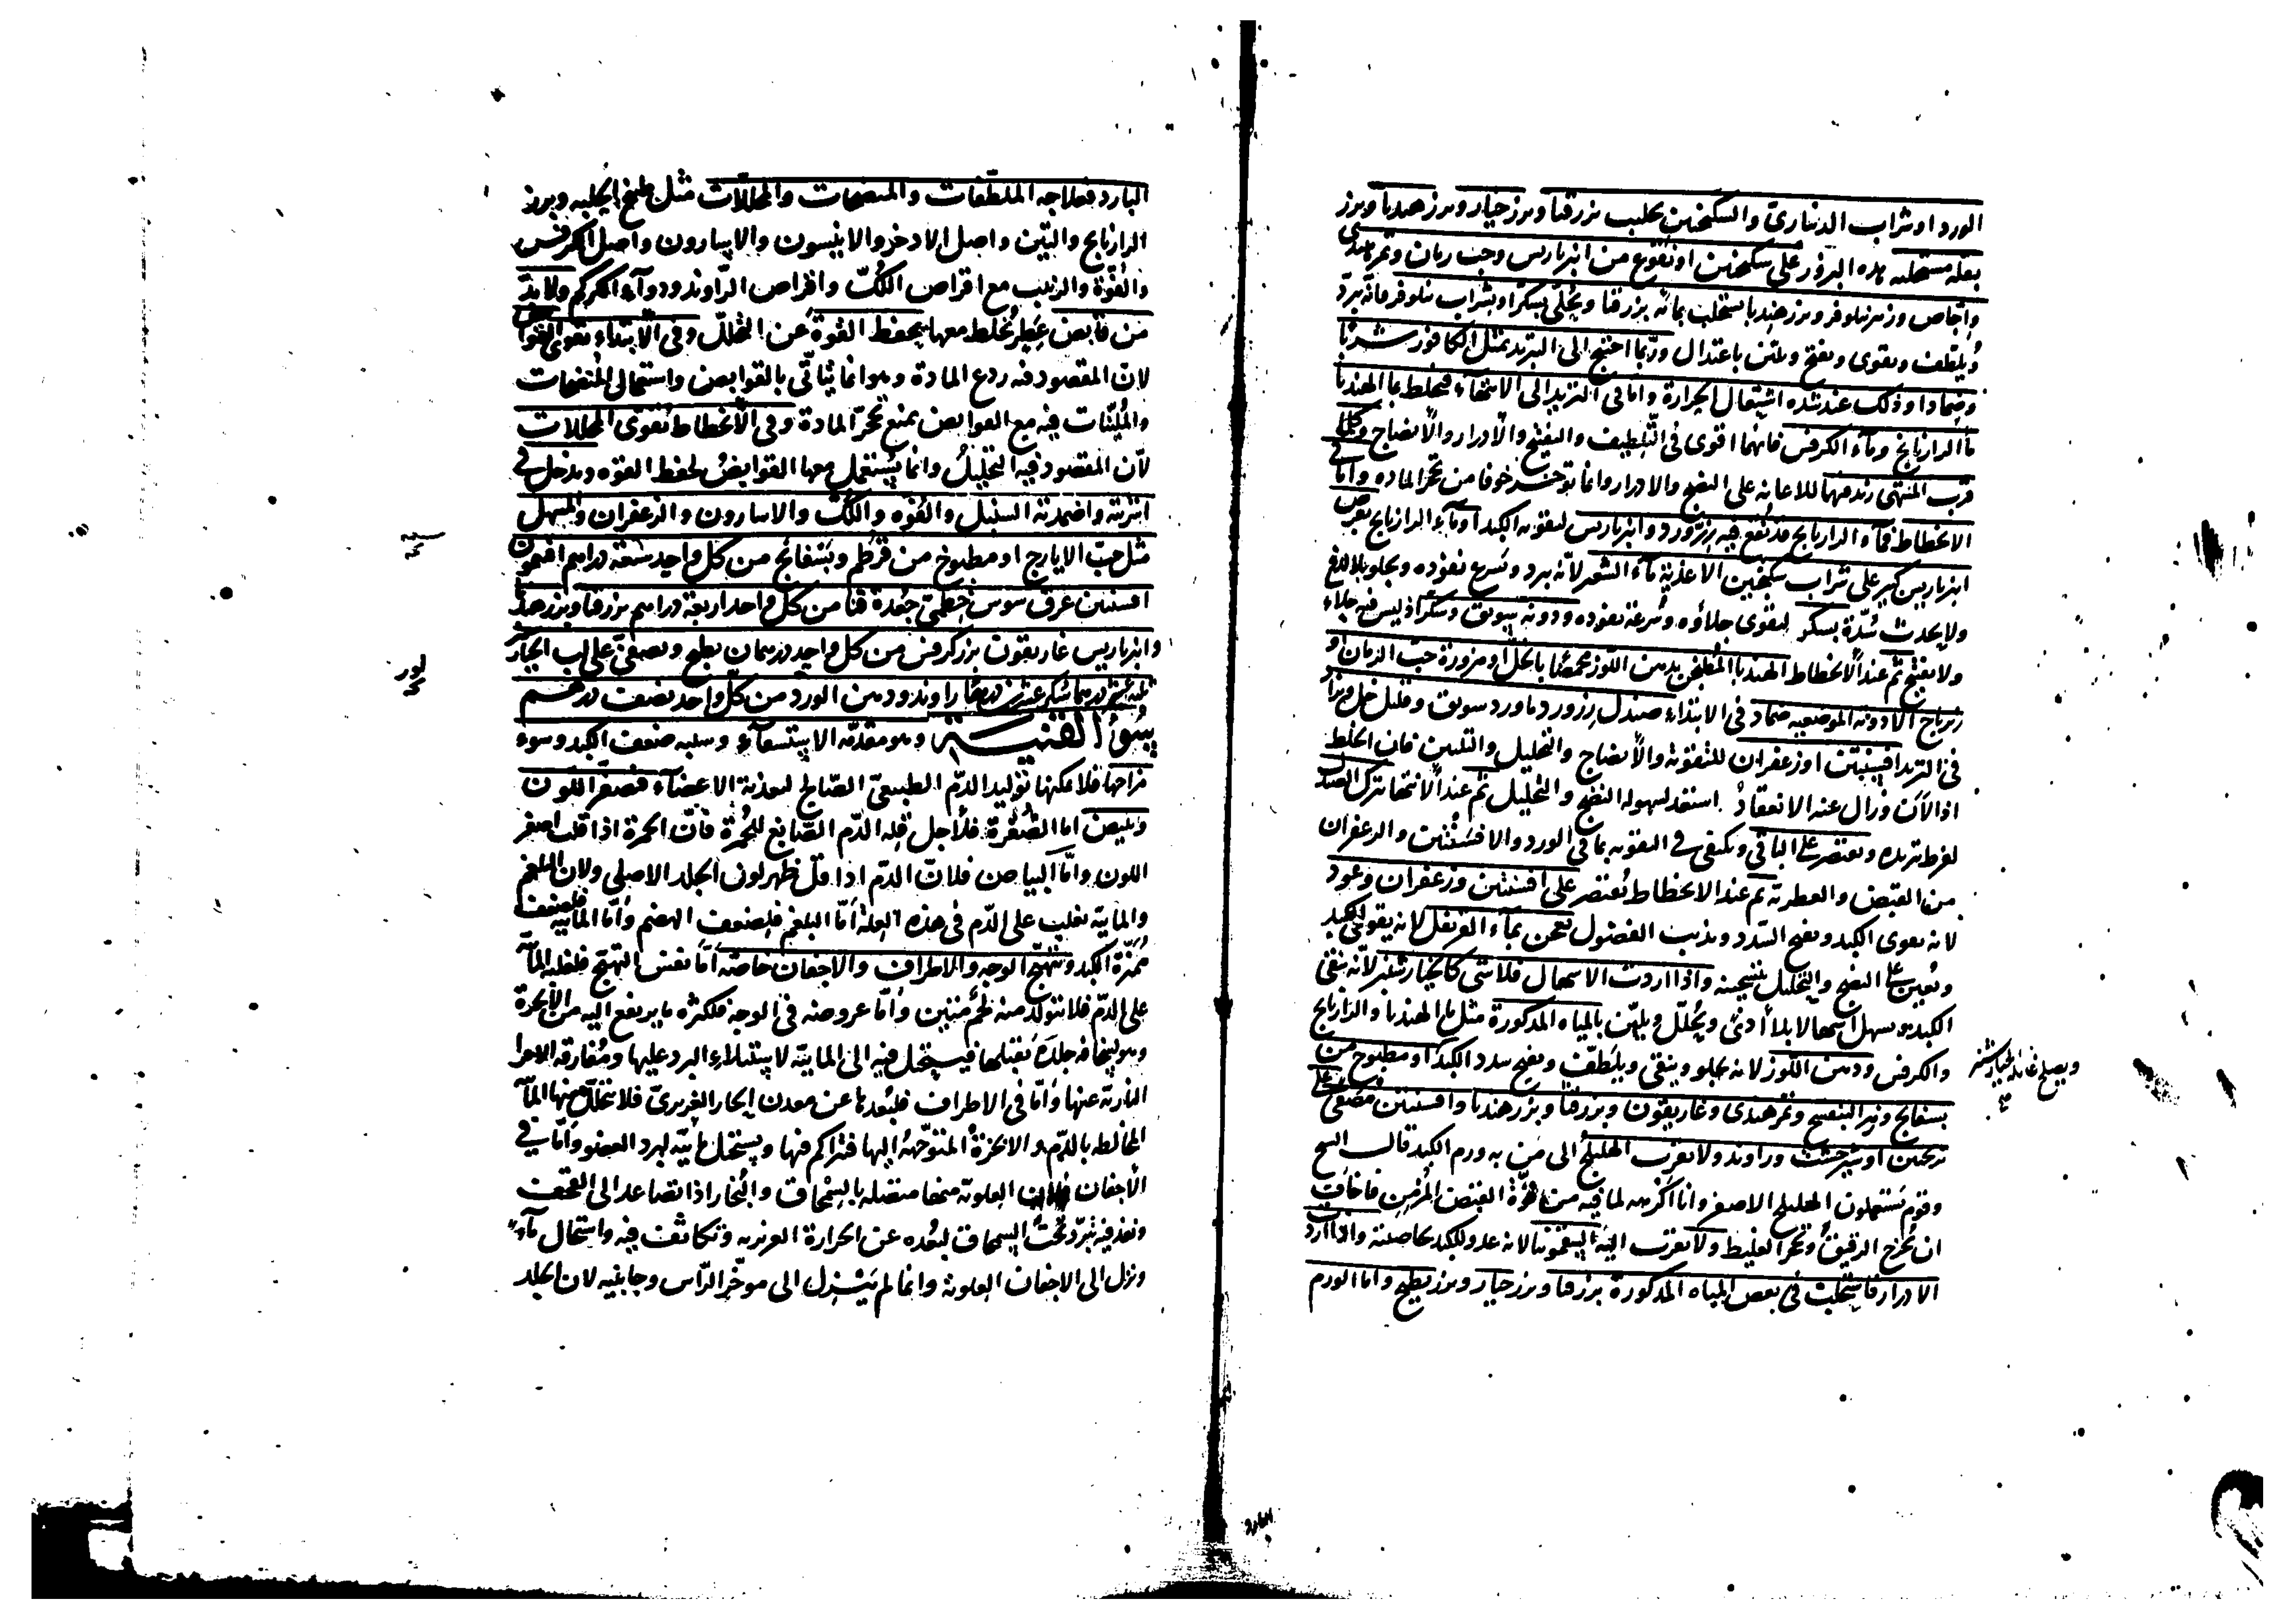 الورد او شراب الديناري والسكنجبين بحليب بزر قثا وبزر خيار وبزر هندبا وبزر
بقله مستحلبه هذه البزور على سكنجبين او نقوع من انبرباريس وحب رمان وتمر هندي
واجاص وزهر نيلوفر وبزر هندبا يستحلب بمائه بزر قثا ويحلى بسكر او بشراب نيلوفر فانه يبرد
ويلطف ويقوى ويفتح ويلين باعتدال وربما احتيج الى التبريد بمثل الكافور شربا
وضمادا وذلك عند شده اشتعال الحرارة واما فى التزيد الى الانتهاء فيخلط بما الهندبا
ما الرازيانج وماء الكرفس فانهما اقوى فى التلطيف والتفتيح والادرار والانضاج وكلما
قرب المنتهى زيد منهما للاعانه على النضج والادرار وانما توخر خوفا من تحجر الماده واما فى
الانحطاط فماء الرازيانج قد نقع فيه زرورد وانبرباريس لتقويه الكبد او ماء الرازيانج بقرص
انبرباريس كبير على شراب سكنجبين الاغذية ماء الشعير لانه يبرد ويسرع نفوذه ويجلو بلا لذع
ولا يحدث سدة بسكر ليقوى جلاؤه وسرعة نفوذه ودونه سويق وسكر اذ ليس فيه جلاء
ولا يفتح ثم عند الانحطاط الهندبا المطجن بدهن اللوز محمضا بالخل او مزورة حب الرمان او
زيرباج الادويه الموضعيه ضماد فى الابتداء صندل زرورد ماورد سويق وقليل خل ويزاد
فى التزيد افسنتين او زعفران للتقوية والانضاج والتحليل والتليين فان الخلط
اذا لان وزال عنه الانعقاد استعد لسهوله النضج والتحليل ثم عند الانتها يترك الصندل
لفرط تبريده ويقتصر على الباقي ويكتفى فى التقويه بما فى الورد والافسنتين والزعفران
من القبض والعطرية ثم عند الانحطاط يقتصر على افسنتين وزعفران وعود
لانه يقوى الكبد ويفتح السدد ويذيب الفضول يعجن بماء القرنفل لانه يقوى الكبد
ويعين على النضج والتحليل بتسخينه واذا اردت الاسهال فلا شى كالخيار شنبر لانه ينقى
الكبد ويسهل اسهالا بلا اذى ويحلل ويلين بالمياه المذكورة مثل ما الهندبا والرازيانج
والكرفس ودهن اللوز لانه يجلو وينقى ويلطف ويفتح سدد الكبد او مطبوخ من
ويصلح غائلة الخيار شنبر
بسفايج وزهر البنفسج وتمر هندى وغاريقون وبزر قثا وبزر هندبا وافسنتين مصفى على
ترنجبين او شيرخشت وراوند ولا تقرب الهليلج الى من به ورم الكبد قال الشيخ
وقوم يستعملون الهليلج الاصفر وانا اكرهه لما فيه من قوة القبض المزمن فاخاف
ان يخرج الرقيق ويحجر الغليظ ولا تقرب اليه السقمونيا لانه عدو للكبد بخاصيته واذا اردت
الادرار فاستحلب فى بعض المياه المذكورة بزر قثا وبزر خيار وبزر بطيخ واما الورم
البارد
البارد فعلاجه الملطفات والمنضجات والمحللات مثل طبيخ الحلبه وبزر
الرازيانج والتين واصل الاذخر والانيسون والاسارون واصل الكرفس
والفوة والزبيب مع اقراص اللك واقراص الراوند ودواء الكركم ولا بد
من قابض عطر يخلط معها يحفظ القوة عن التحلل وفى الابتداء تقوى القوابض
لان المقصود فيه ردع المادة وهو انما يتاتى بالقوابض واستعمال المنضجات
والملينات فيه مع القوابض يمنع تحجر المادة وفى الانحطاط تقوى المحللات
لان المقصود فيه التحليل وانما يستعمل معها القوابض لحفظ القوه ويدخل فى
اشربته واضمدته السنبل والفوه واللك والاسارون والزعفران والمسهل
مثل حب الايارج او مطبوخ من قرطم وبسفايج من كل واحد سبعه دراهم افتيمون
افسنتين عرق سوس خطمى جعدة قنا من كل واحد اربعة دراهم بزر قثا وبزر هندبا
وانبرباريس غاريقون بزر كرفس من كل واحد درهمان يطبخ ويصفى على لب الخيار شنبر
ثلثه عشر درهما سكر عشرين درهما راوند ودهن الورد من كل واحد نصف درهم
سوء القنية وهو مقدمه الاستسقاء وسببه ضعف الكبد وسوء
مزاجها فلا يمكنها توليد الدم الطبيعى الصالح لتغذية الاعضاء فيصفر اللون
ويبيض اما الصفرة فلاجل قله الدم الصابغ للحمرة فان الحمرة اذا قلت اصفر
اللون واما البياض فلان الدم اذا قل ظهر لون الجلد الاصلى ولان البلغم
والمايية تغلب على الدم فى هذه العلة اما البلغم فلضعف الهضم واما المايية فلضعف
مميزة الكبد وتهيج الوجه والاطراف والاجفان خاصه اما نفس التهيج فلغلبه الماء
على الدم فلا يتولد منه لحم متين واما عروضه فى الوجه فلكثره ما يرتفع اليه من الابخرة
وهو لسخافه جلده يقبلها فيستحيل فيه الى المايية لاستيلاء البرد عليها ومفارقه الاجزا
النارية عنها واما فى الاطراف فلبعدها عن معدن الحار الغريزى فلا يتحلل منها الماء
المخالطه بالدم والابخرة المتوجهة اليها فتتراكم فيها ويستحيل مايية لبرد العضو واما فى
الاجفان فلان العلوية منها متصله بالسمحاق والبخار اذا تصاعد الى القحف
ونفذ فيه تبرد تحت السمحاق لبعده عن الحرارة الغريزيه وتكاثف فيه واستحال ماء
ونزل الى الاجفان العلوية وانما لم ينزل الى موخر الراس وجانبيه لان الجلد